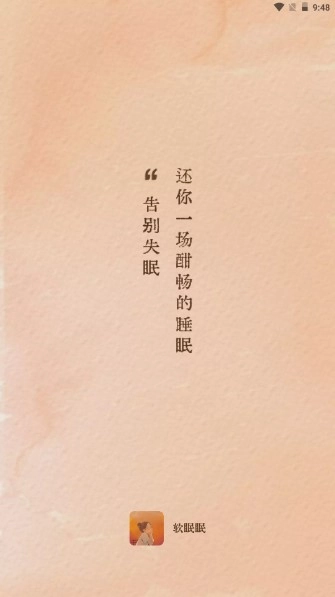 9:48
还你一场酣畅的睡眠
“告别失眠
软眠眠